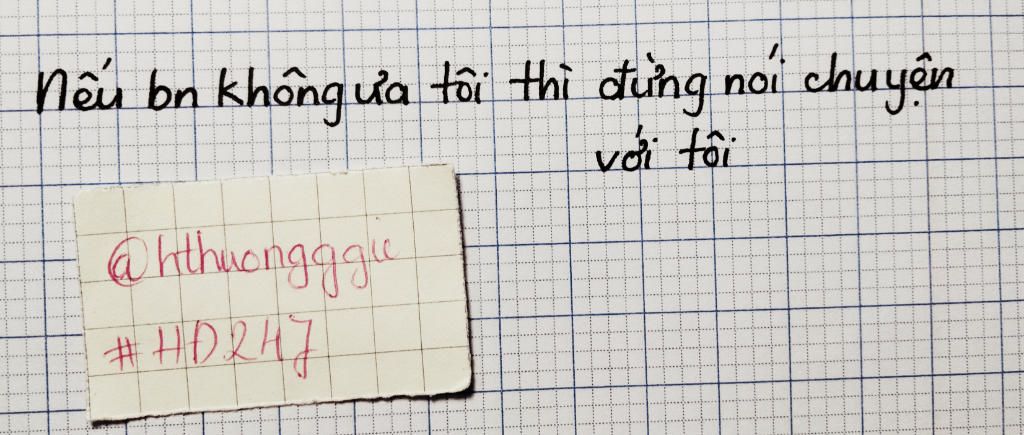 Nếu bn không ưa tôi thì đừng nói chuyện
với tôi
@hthuongggic
#HD247